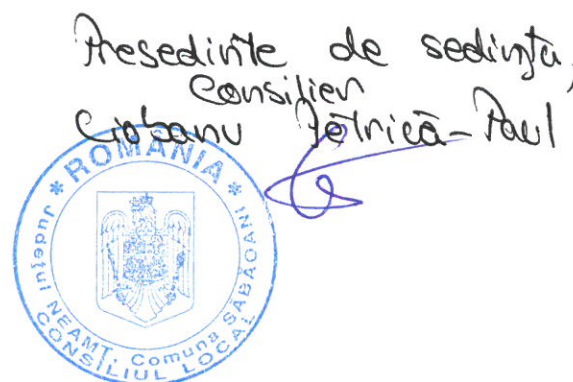 Presedinte de sedință,
Consilier
Ciobanu Petrică-Paul
* ROMÂNIA *
Județul NEAMȚ, Comuna SĂBĂOANI
CONSILIUL LOCAL